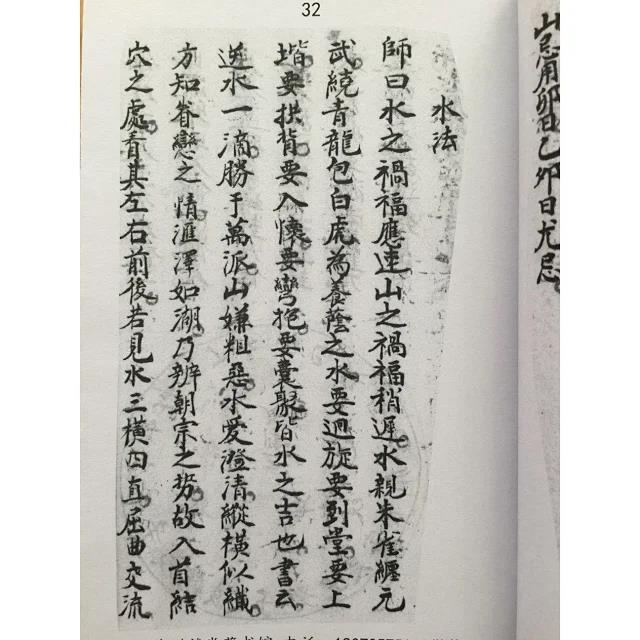 32
山忌用卯日乙卯日尤忌
水法
師曰水之禍福應速山之禍福稍遲水親朱雀纏元
武繞青龍包白虎為養蔭之水要迴旋要到堂要上
堦要拱背要入懷要彎抱要囊聚皆水之吉也書云
逆水一滴勝于萬派山嫌粗惡水愛澄清縱橫似織
方知眷戀之情滙澤如湖乃辨朝宗之勢故入首結
穴之處看其左右前後若見水三橫四直屈曲交流